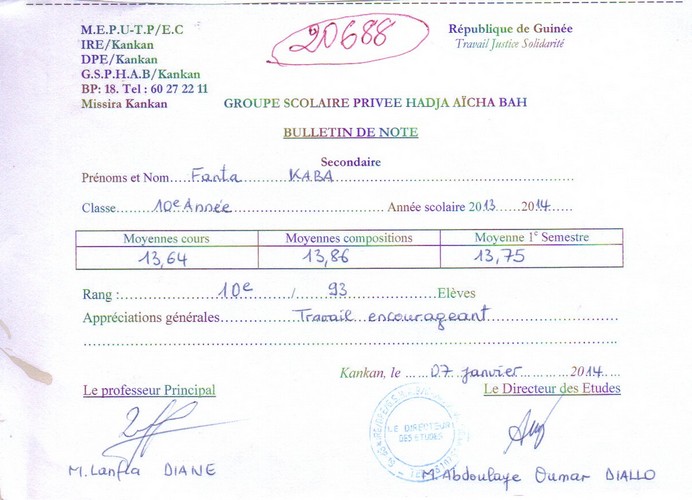 M.E.P.U-T.P/E.C
20688
République de Guinée
IRE/Kankan
Travail Justice Solidarité
DPE/Kankan
G.S.P.H.A.B/Kankan
BP: 18. Tel : 60 27 22 11
Missira Kankan
GROUPE SCOLAIRE PRIVEE HADJA AÏCHA BAH
BULLETIN DE NOTE
Secondaire
Prénoms et Nom.... Fanta KABA
Classe......... 10e Année ......... Année scolaire 2013......2014......
Moyennes cours Moyennes compositions Moyenne 1e Semestre
13,64 13,86 13,75
Rang :......... 10e / 93 .........Elèves
Appréciations générales......... Travail encourageant
Kankan, le ...... 07 janvier .........2014......
Le professeur Principal Le Directeur des Etudes
LE DIRECTEUR
DES ETUDES
M. Lanfia DIANE M. Abdoulaye Oumar DIALLO